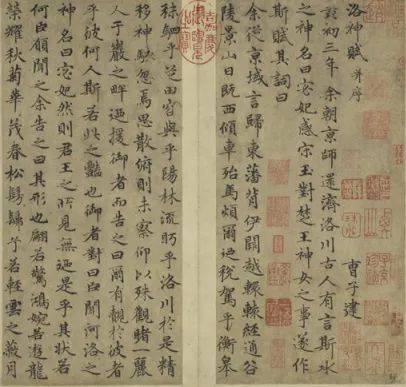 洛神賦 并序
曹子建
黃初三年余朝京師還濟洛川古人有言斯水
之神名曰宓妃感宋玉對楚王神女之事遂作
斯賦其詞曰
余從京域言歸東藩背伊闕越轘轅經通谷
陵景山日既西傾車殆馬煩爾迺稅駕乎衡皋
秣駟乎芝田容與乎陽林流眄乎洛川於是精
移神駭忽焉思散俯則未察仰以殊觀睹一麗
人于巖之畔迺援御者而告之曰爾有覿於彼者
乎彼何人斯若此之豔也御者對曰臣聞河洛之
神名曰宓妃然則君王之所見無迺是乎其狀若
何臣願聞之余告之曰其形也翩若驚鴻婉若遊龍
榮耀秋菊華茂春松髣髴兮若輕雲之蔽月